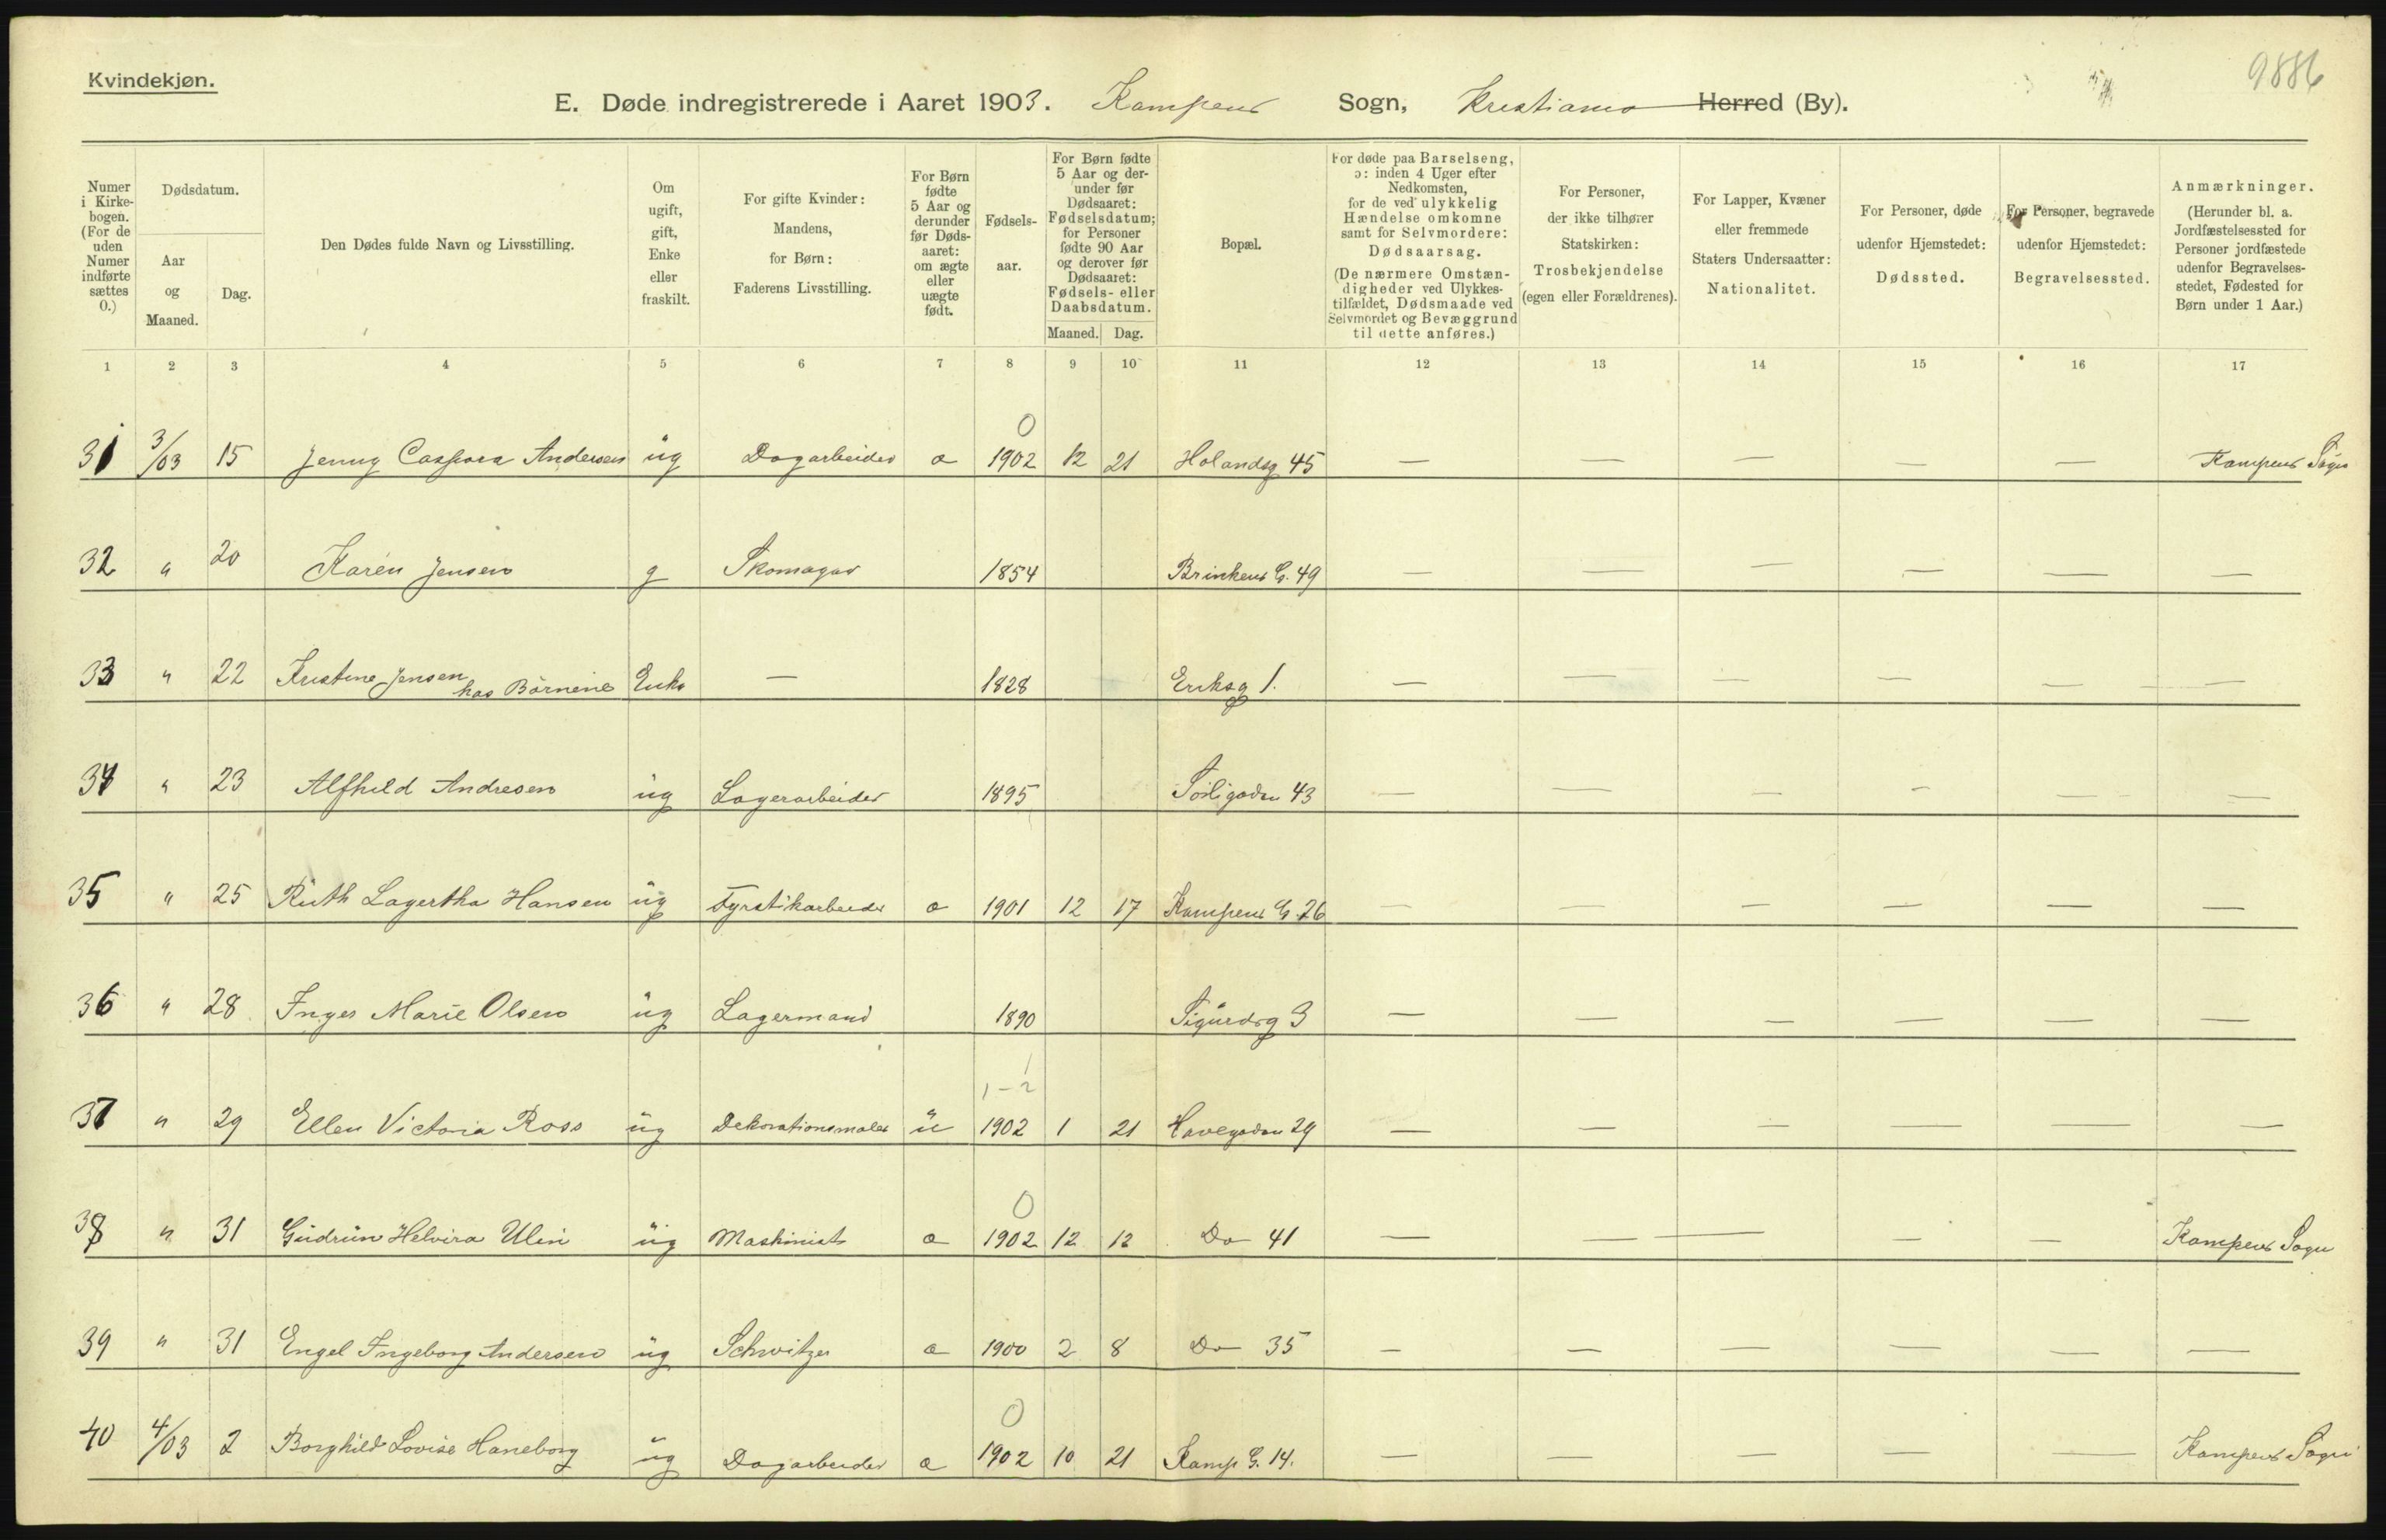 Kvindekjøn.
9886
E. Døde indregistrerede i Aaret 1903. Kampens Sogn, Kristiania Herred (By).
Numer i Kirkebogen. (For de uden Numer indførte sættes 0.)
Dødsdatum.
Aar og Maaned.
Dag.
Den Dødes fulde Navn og Livsstilling.
Om ugift, gift, Enke eller fraskilt.
For gifte Kvinder: Mandens, for Børn: Faderens Livsstilling.
For Børn fødte 5 Aar og derunder før Dødsaaret: om ægte eller uægte født.
Fødselsaar.
For Børn fødte 5 Aar og derunder før Dødsaaret: Fødselsdatum; for Personer fødte 90 Aar og derover før Dødsaaret: Fødsels- eller Daabsdatum.
Maaned. Dag.
Bopæl.
For døde paa Barselseng, ɔ: inden 4 Uger efter Nedkomsten, for de ved ulykkelig Hændelse omkomne samt for Selvmordere: Dødsaarsag. (De nærmere Omstændigheder ved Ulykkestilfældet, Dødsmaade ved Selvmordet og Bevæggrund til dette anføres.)
For Personer, der ikke tilhører Statskirken: Trosbekjendelse (egen eller Forældrenes).
For Lapper, Kvæner eller fremmede Staters Undersaatter: Nationalitet.
For Personer, døde udenfor Hjemstedet: Dødssted.
For Personer, begravede udenfor Hjemstedet: Begravelsessted.
Anmærkninger. (Herunder bl. a. Jordfæstelsessted for Personer jordfæstede udenfor Begravelsesstedet, Fødested for Børn under 1 Aar.)
1 2 3 4 5 6 7 8 9 10 11 12 13 14 15 16 17
0
31 3/03 15 Jenny Caspara Andersen ug Dagarbeider a 1902 12 21 Holandsg 45 — — — — — Kampens Sogn
32 " 20 Karen Jensen g Skomager 1854 Brinkens G. 49 — — — — — —
33 " 22 Kristine Jensen hos Børnene Enke — 1828 Eriksg 1. — — — — — —
34 " 23 Alfhild Andresen ug Lagerarbeider 1895 Sörligaden 43 — — — — — —
35 " 25 Ruth Lagertha Hansen ug Fyrstikarbeider a 1901 12 17 Kampens G. 26 — — — — — —
36 " 28 Inger Marie Olsen ug Lagermand 1890 Sigurdsg 3 — — — — — —
1-2
37 " 29 Ellen Victoria Ross ug Dekorationsmaler u 1902 1 21 Havegaden 29 — — — — —
0
38 " 31 Gudrun Helvira Ulin ug Maskinist a 1902 12 12 Do 41 — — — — — Kampens Sogn
39 " 31 Engel Ingeborg Andersen ug Schwitzer a 1900 2 8 Do 35 — — — — — —
0
40 4/03 2 Borghild Lovise Haneborg ug Dagarbeider a 1902 10 21 Kamp G. 14. — — — — — Kampens Sogn